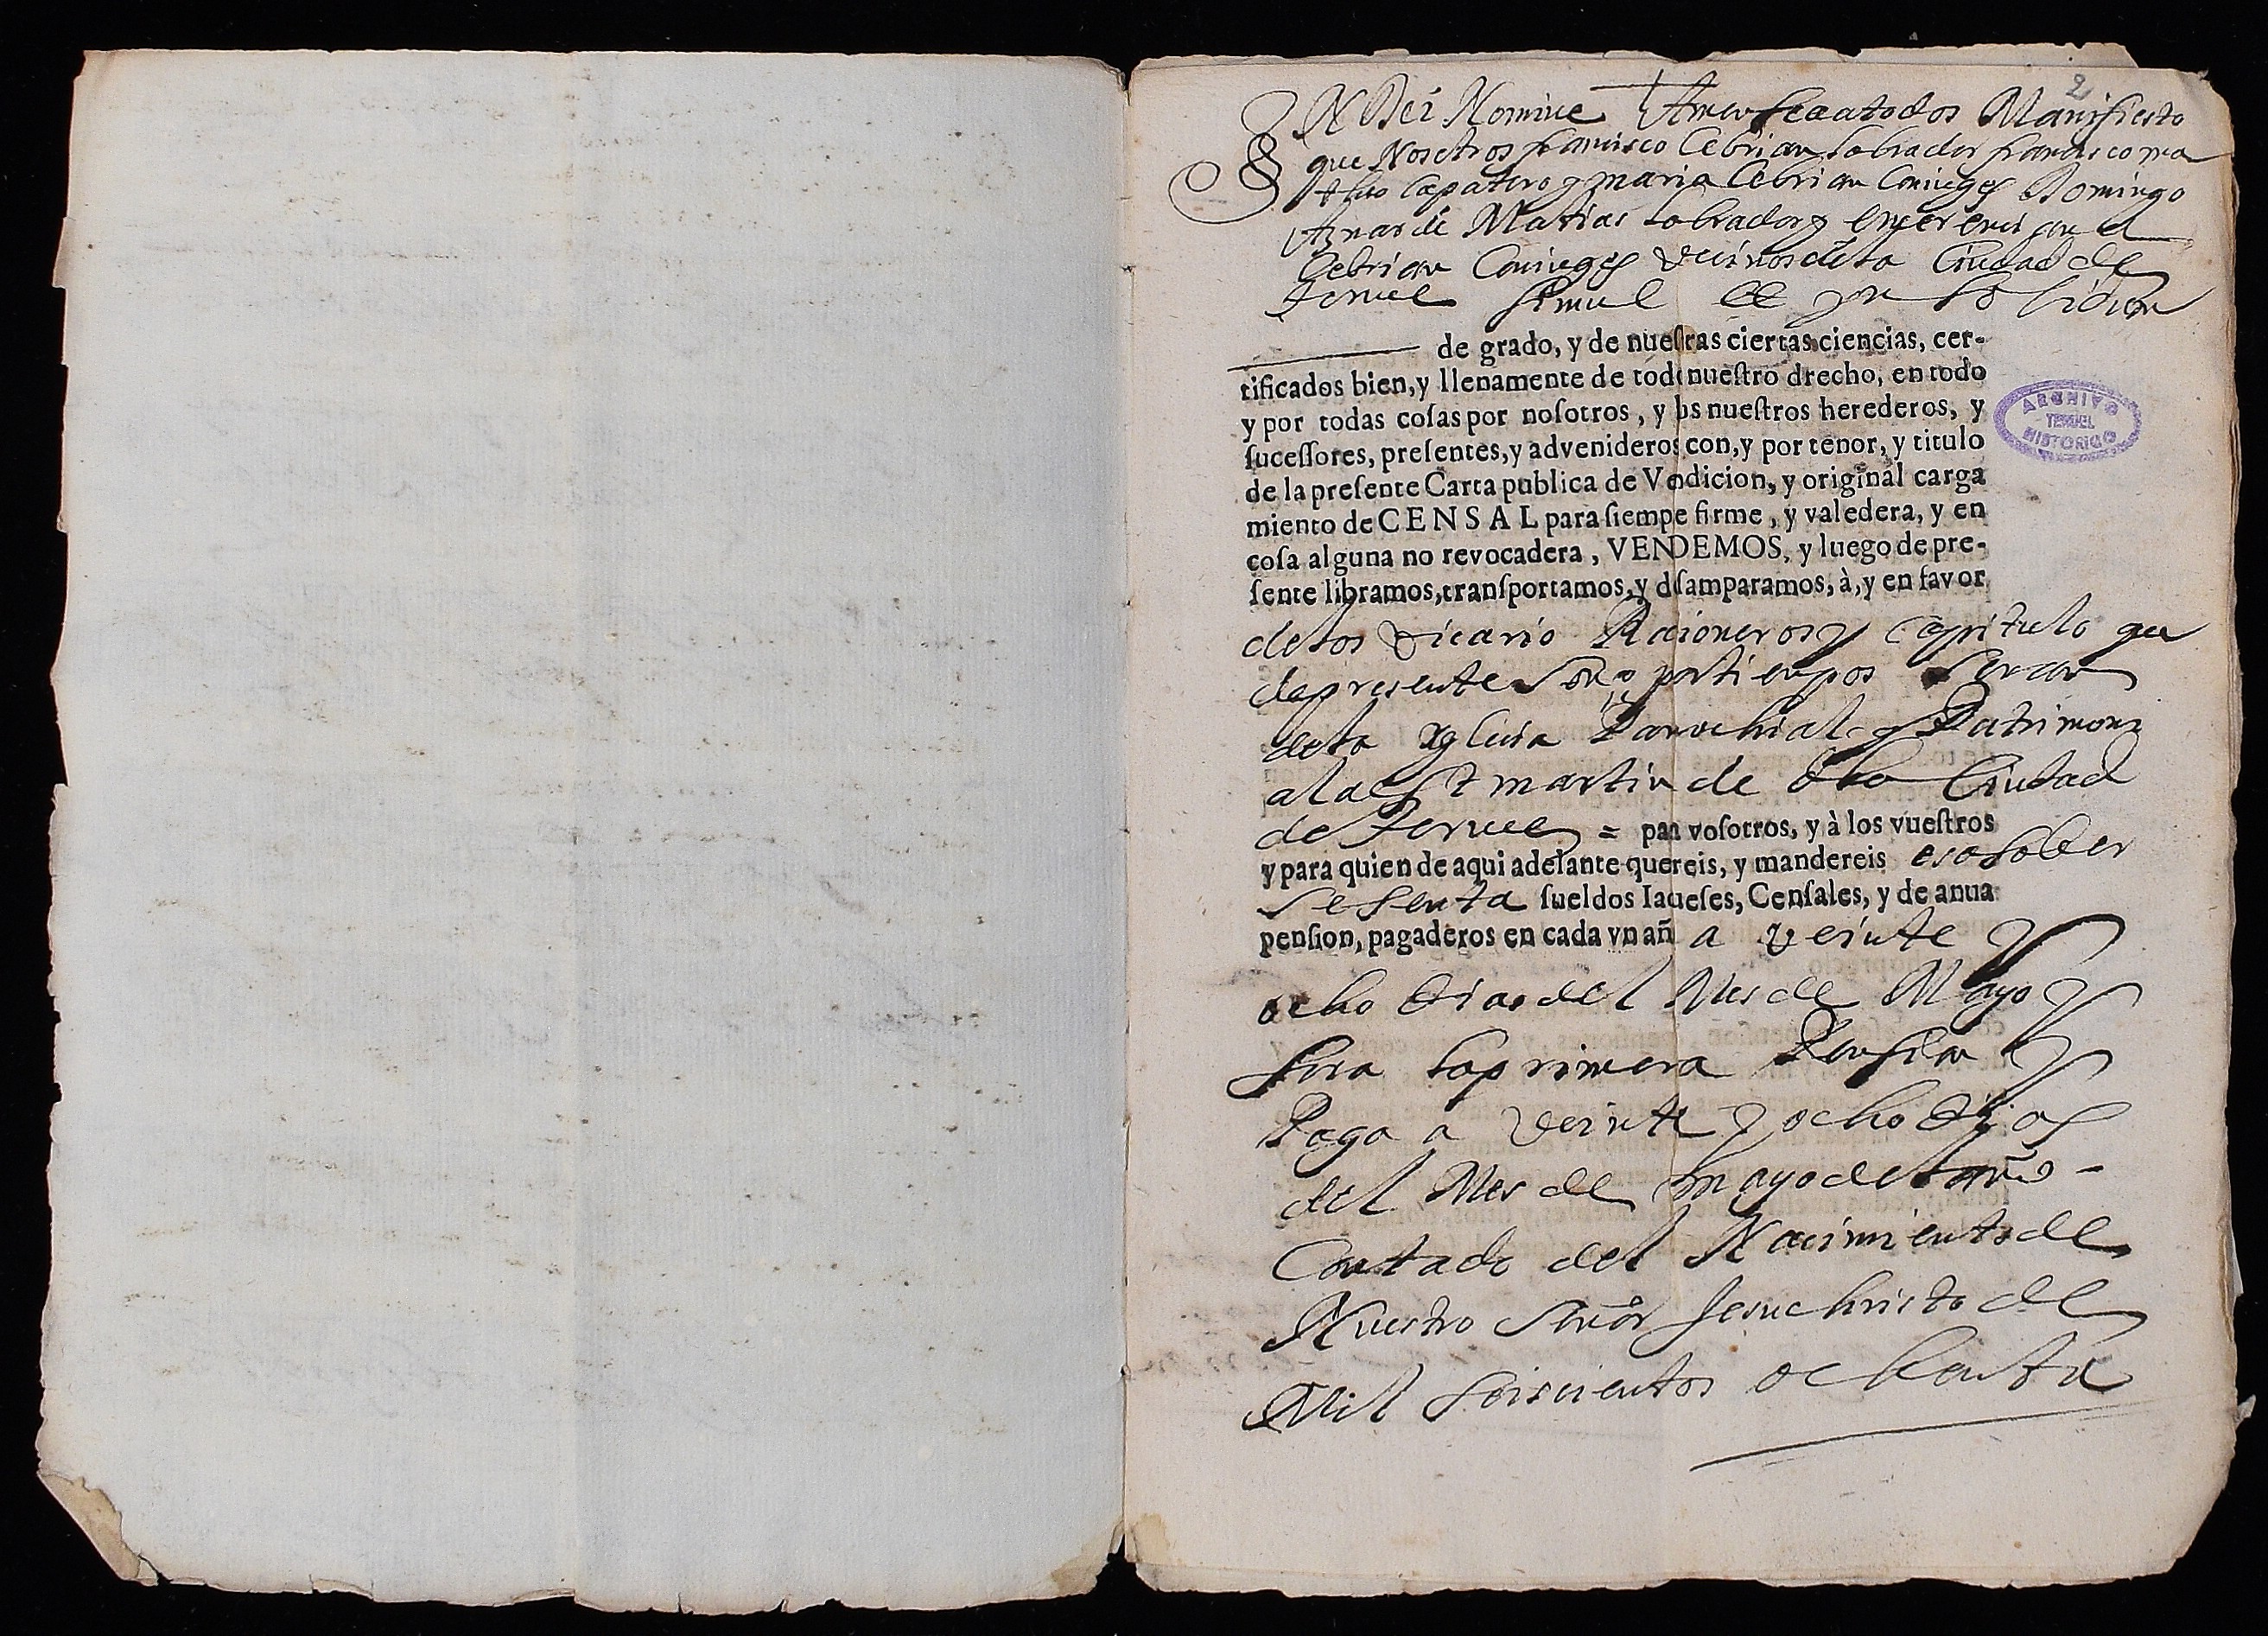 2
IN Dei Nomine Amen sea a todos Manifiesto
que Nosotros francisco Cebrian labrador francisco ma
theo Çapatero y maria Cebrian Coniuges Domingo
Aznar de Matias labrador y
Cebrian Coniuges vecinos de la Ciudad de
teruel simul et in solidum
de grado, y de nueſtras ciertas ciencias, cer-
tificados bien, y llenamente de tod nueſtro drecho, en todo
y por todas coſas por noſotros, y los nueſtros herederos, y
ſuceſſores, preſentes, y advenideros con, y por tenor, y titulo
de la preſente Carta publica de Vendicion, y original carga
miento de CENSAL para ſiempe firme, y valedera, y en
coſa alguna no revocadera, VENDEMOS, y luego de pre-
ſente libramos, tranſportamos, y dſamparamos, à, y en favor
de los Vicario Racioneros y Capitulo que
de presente son y por tienpos seran
de la Yglesia Parochial y Patrimoni
al de Sr martin de dha Ciudad
de Teruel = para voſotros, y à los vueſtros
y para quien de aqui adelante quereis, y mandereis es a saber
sesenta ſueldos Iaqueſes, Cenſales, y de anua
penſion, pagaderos en cada vn añ a veinte y
ocho dias del Mes de Mayo y
sera la primera Pension y
Paga a veinte y ocho dias
del Mes de mayo del año -
Contado del Nacimiento de
Nuestro Señor Jesuchristo de
Mil seiscientos ochenta
ARCHIVO
TERUEL
HISTORICO